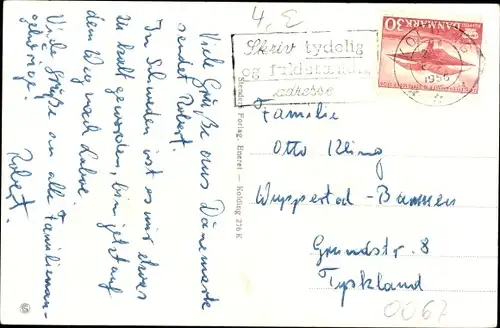 Viele Grüße aus Dänemark
sendet Robert.
In Schweden ist es mir etwas
zu kalt geworden, bin jetzt auf
dem Weg nach
Viele Grüße an alle Familienan-
gehörige!
Robert.
4, E
Skriv tydelig
og fuldstændig
adresse
30 DANMARK
KOLDING
1956
Stenders Forlag. Eneret — Kolding 276 K
Familie
Otto Kling
Wuppertal-Barmen
Grundstr. 8
Tyskland
0067